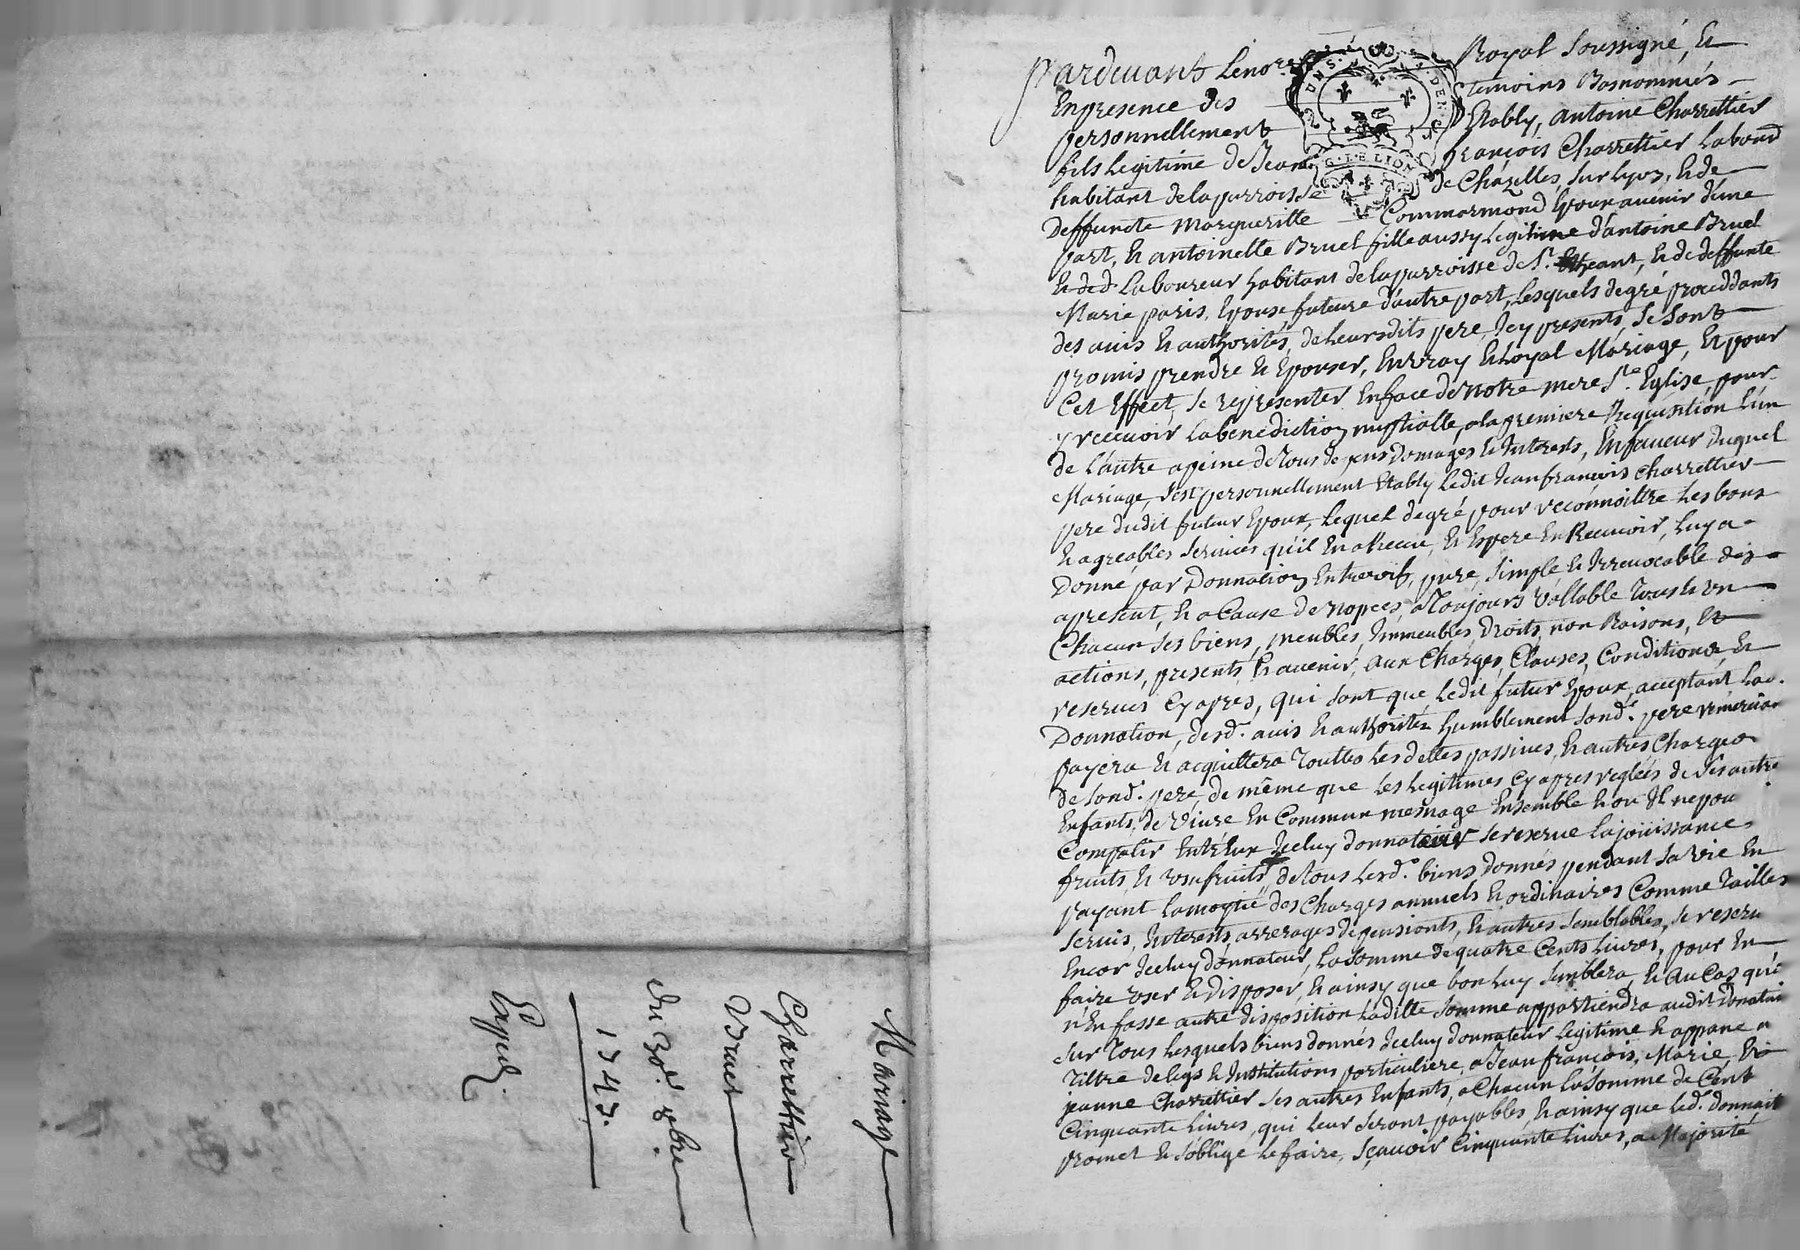 Mariage
Charrettier
Bruel
du 30e. xbre
1747.
Expedié.
pardevant Lenore Royal Soussigné, et
En presence des temoins Basnommés
personnellement Etably, antoine Charrettier
fils Legitime de Jean françois Charrettier Labour
habitant de la parroisse de Chazelles, sur Lyon, et de
deffuncte Margueritte Commarmond Epoux avenir d'une
part, et antoinette Bruel fille aussy Legitime d'antoine Bruel
et de d Laboureur habitant de la parroisse de St. et de deffunte
Marie paris, Epouse future d'autre part, Lesquels de gré proceddants
des avis et authorités, de Leursdits pere, Icy presents, Se Sont
promis prendre et Epouser, En vray et Loyal Mariage, et pour
Cet Effect, Se representer En face de Notre mere Ste. Eglise, pour
y recevoir La benediction nuptialle, a la premiere Requisition L'un
de L'autre a peine de Tous depens Domages et Interests, En faveur duquel
Mariage, s'est personnellement Etably Ledit Jean françois Charrettier
pere dudit futeur Epoux, Lequel de gré pour reconnoittre Les bons
et agreables Services qu'il En a Receu, et Espere En Recevoir, Luy a
Donné par Donnation Entrevif, pure, Simple et Irrevocable des
apresent, et a Cause de Nopces, a Toujours Vallable Tous et un
Chacun Ses biens, meubles, Immeubles, Droits, nom Raisons, et
actions, presents, et avenir, aux Charges, Clauses, Conditions et
reserves Cy apres, qui Sont que Ledit futur Epoux, acceptant Lad.
Donnation, desd. avis et authorités humblement Sond. pere remerciant
payera et acquittera Touttes Les dettes passives, et autres Charges
de Sond. pere de même que Les Legitimes Cy apres reglées de Ses autre
Enfants, de Vivre En Commun mesnage Ensemble et ou Il ne pou
Compatir Entr'Eux Iceluy donnateur Se reserve La jouissance
fruits, et usufruits, de Tous Lesd. biens donnés pendant Sa Vie En
payant La moytié des Charges annuels et ordinaires Comme Tailles
Servis, Interests, arrerages de pensions, et autres Semblables, Se reserv
Encor Iceluy donnateur, La Somme de quatre Cents Livres, pour En
faire user et disposer, et ainsy que bon Luy Semblera, et au Cas qu'il
n'En fasse autre disposition Laditte Somme appartiendra audit donatai
Sur Tous Lesquels biens donnés Iceluy donnateur Legitime et appane a
Tiltre de Legs et Institutions particuliere, a Jean françois, Marie, et
jeanne Charrettier Ses autres Enfants, a Chacun La Somme de Cent
Cinquante Livres, qui Leur Seront payables, et ainsy que Led. donnat
promet et S'oblige Le faire, Sçavoir Cinquante Livres, a Majorité